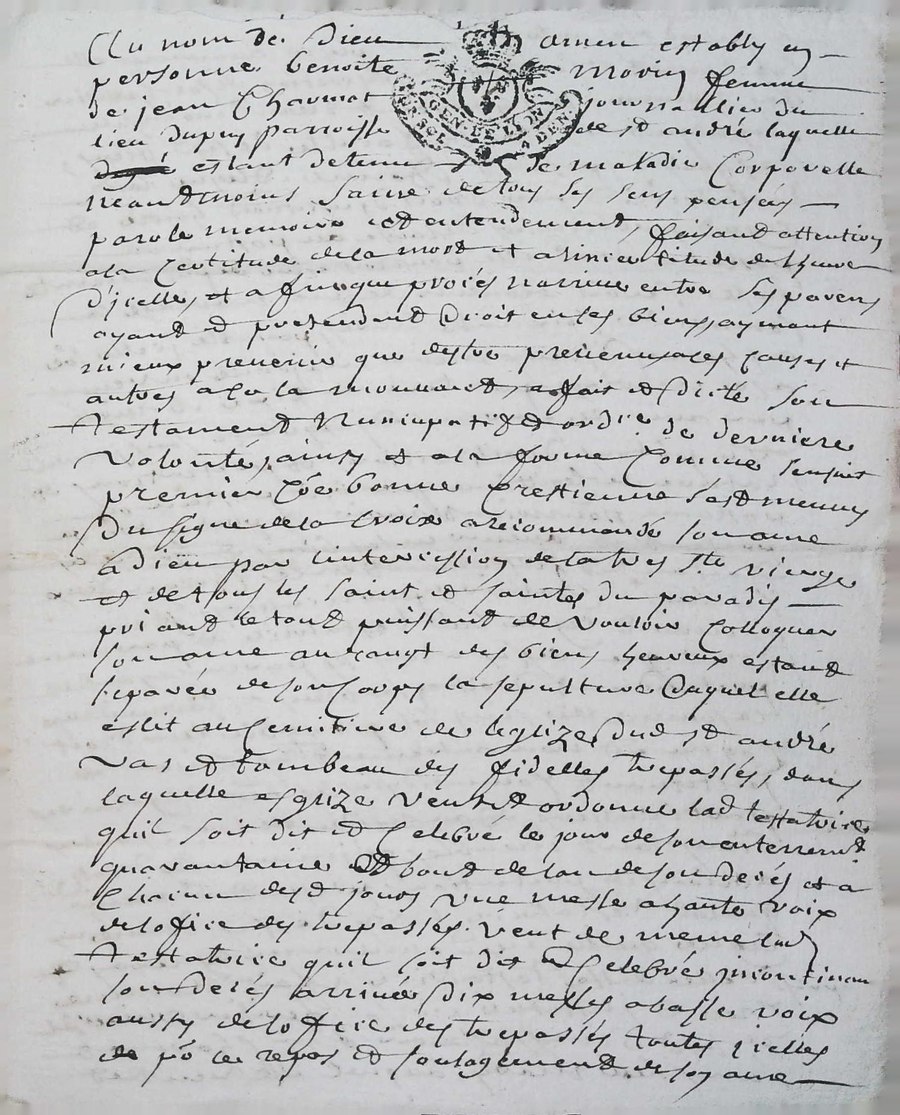 Au nom de Dieu amen establÿ en
personne benoite morin femme
de jean Charmet journallier du
lieu dupuy parroisse de st andré laquelle
estant detenue de maladie Corporelle
neandmoins saine de tous ses sens pensées
parole memoire et entendement, faisand attention
a la Certitude de la mord et a linsertitude de lheure
d'jcelle, et afin que procés narrive entre ses parens
ayand et pretendand droit en ses biens, aymant
mieux prevenir que destre prevenu, a ces causes et
autres a ce la mouvand, a fait et dicté son
testament Nuncupatif et ordre. de derniere
volonté, ainsy et a la forme Comme sensuit
premier Cõe bonne Crestienne sest munny
du signe de la Croix a recommandé son ame
a dieu par lintercession de la tres ste vierge
et de tous les saint et saintes du paradis
priand le tout puissant de vouloir Colloquer
son ame au rangt des biens heureux estand
separée de son Corps la sepulture duquel elle
eslit au Cemitiere de leglize dud st andré
vas et tombeau des fidelles trepassés, dans
laquelle esglize veut et ordonne lad testatrice
quil soit dit et Celebré le jour de son enterremt.
quarantaine et bout de lan de son decés et a
Chacun desd jours une messe a haute voix
de lofice des trepassés. veut de meme lad
testatrice quil soit dit et Celebré jncontinan
son decés arrivé dix messes a basse voix
aussy de lofice des trepassés toutes jcelles
po le repos et soulagement de son ame
GEN. DE LYON
4 DEN